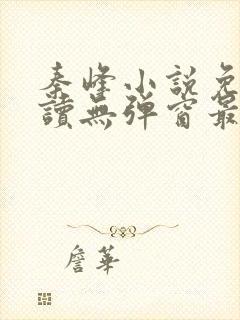 秦峰小說免
讀無彈窗最
詹華